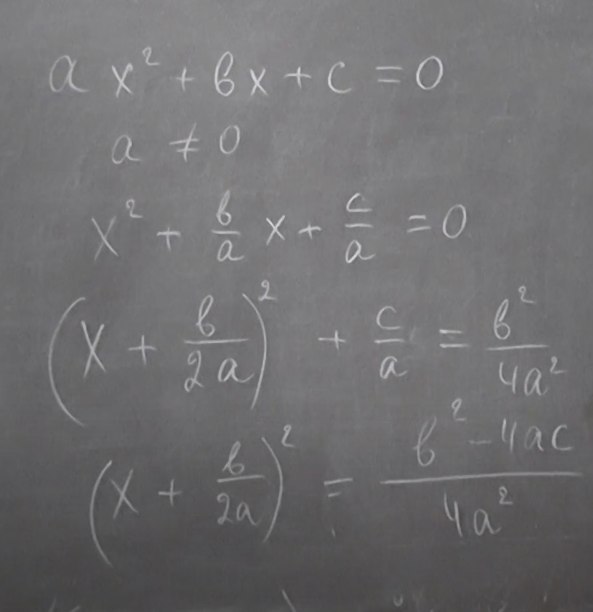 ax² + bx + c = 0
a ≠ 0
x² + b/a x + c/a = 0
(x + b/2a)² + c/a = b²/4a²
(x + b/2a)² = b² - 4ac / 4a²